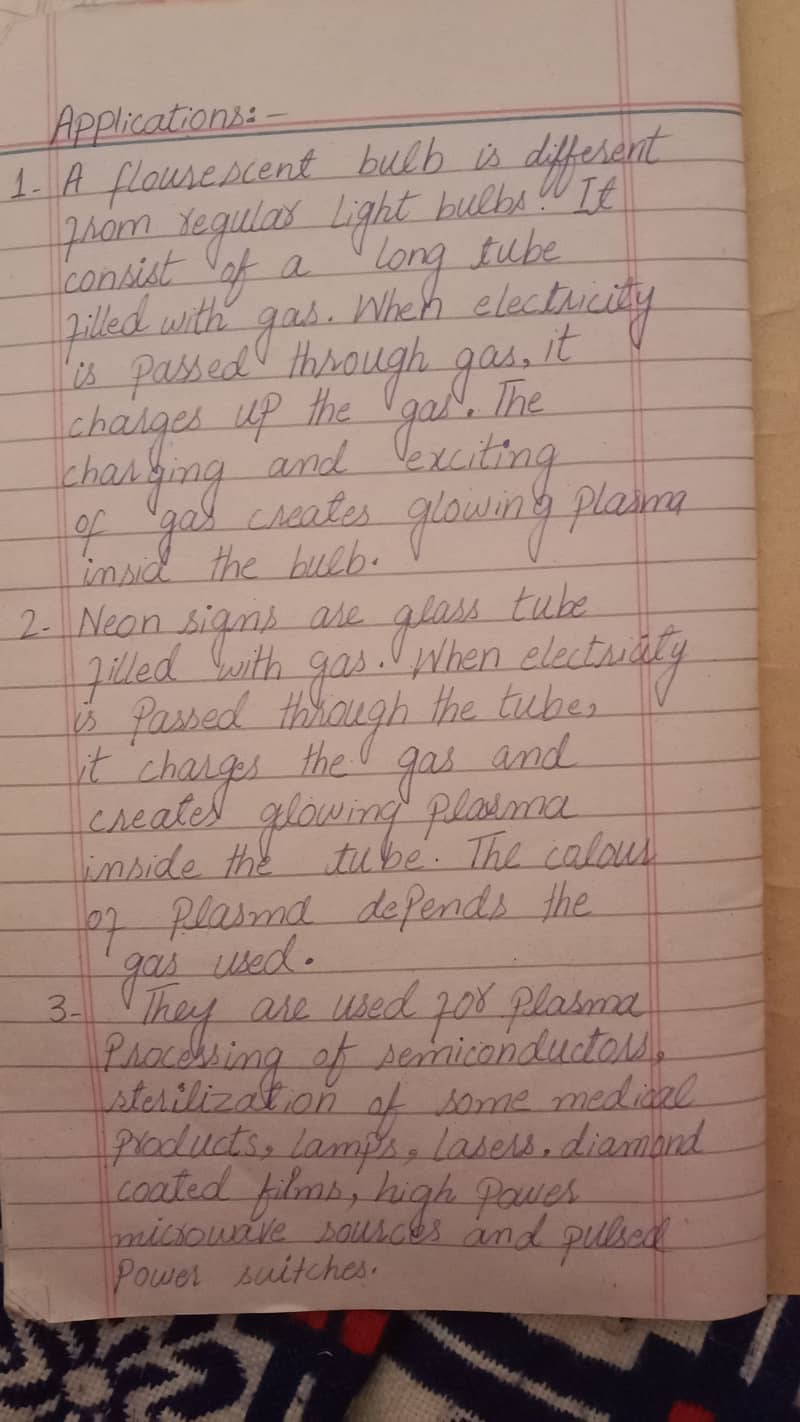 Applications:-
1- A flourescent bulb is different
from regular light bulbs. It
consist of a long tube
filled with gas. When electricity
is passed through gas, it
charges up the gas. The
charging and exciting
of gas creates glowing plasma
insid the bulb.
2- Neon signs are glass tube
filled with gas. When electricity
is passed through the tube,
it charges the gas and
creates glowing plasma
inside the tube. The colour
of plasma depends the
gas used.
3- They are used for plasma
processing of semiconductors,
sterilization of some medical
products, lamps, lasers, diamond
coated films, high power
microwave sources and pulsed
power suitches.